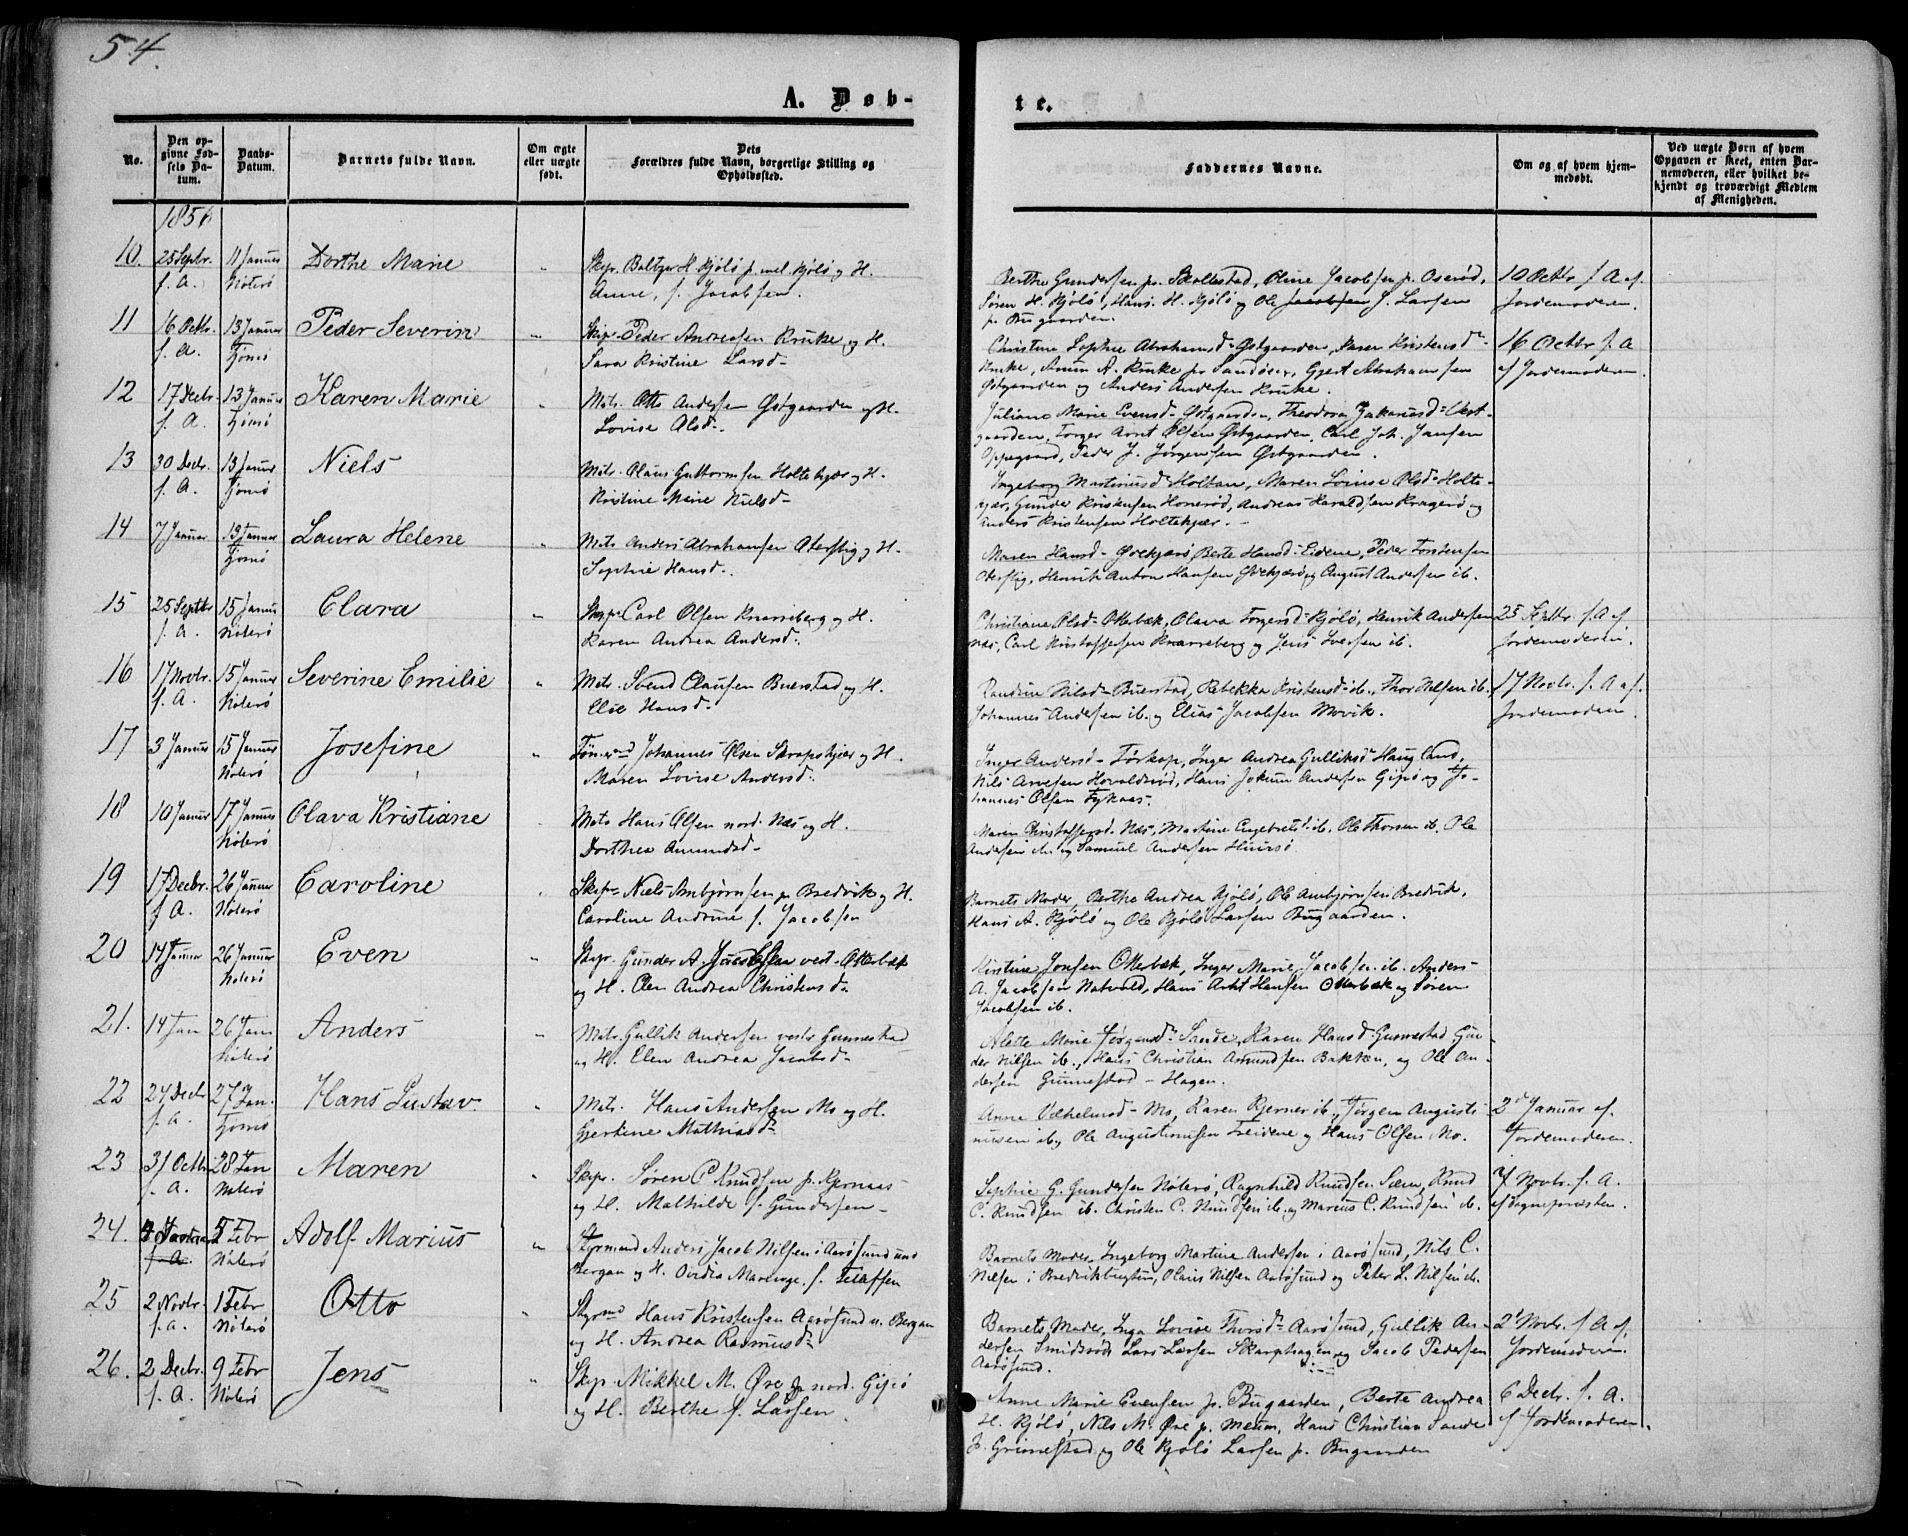 54.
A. Døb-
te.
No.
Den op-
givne Fød-
sels Da-
tum.
Daabs-
Datum.
Barnets fulde Navn.
Om ægte
eller uægte
født.
Dets
Forældres fulde Navn, borgerlige Stilling og
Opholdssted.
Faddernes Navne.
Om og af hvem hjem-
medøbt.
Ved uægte Børn af hvem
Opgaven er skeet, enten Bar-
nemoderen, eller hvilket be-
kjendt og troværdigt Medlem
af Menigheden.
1856
10. 25 Septbr. f. A. 11 Januar Nøterø Dorthe Marie
Skpr. Baltzer H. Kjølø p. vel Kjølø og H.
Anne, f. Jacobsen.
Berthe Gundersen p. Skallestad, Oline Jacobsen p. Oserød,
Søren H. Kjølø, Hans H. Kjølø og Ole Jacobsen J. Larsen
p. Bugaarden.
10 Octbr. f. A. af
Jordemoderen.
11 16 Octbr. f. A. 13 Januar Tjømø Peder Severin
Skip. Peder Andreasen Kruke og H.
Sara Kristine Larsd.
Christine Sophie Abrahamsd. Østgaarden, Karen Kristensd.
Kruke, Anun A. Kruke p. Sandøsen, Gjert Abrahamsen
Østgaarden og Anders Andersen Kruke.
16 Octbr f. A
af Jordemoderen.
12 17 Decbr. f. A. 13 Januar Tjømø Karen Marie
Matr. Otto Andersen Østgaarden og H.
Lovise Olsd.
Juliane Marie Evensd. Østgaarden, Theodora Zakariasd. Vest-
gaarden, Torger Arnt Olsen Østgaarden, Carl Joh. Jansen
Oppegaard, Peder J. Jørgensen Østgaarden.
13 30 Decbr. f. A. 13 Januar Tjømø Niels
Matr. Olaus Guttormsen Holtekjær og H.
Kristine Marie Nielsd.
Ingeborg Martinusd. Holtan, Maren Lovise Olsd. Holte-
kjær, Gunder Kristensen Honerød, Andreas Haraldsen Kragerø og
Anders Kristensen Holtekjær.
14 7 Januar 13 Januar Tjømø Laura Helene
Matr. Anders Abrahamsen Oterstig og H.
Sophie Hansd.
Maren Hansd. Grekjærø, Berte Hansd. Eidene, Peder Torstensen
Oterstig, Henrik Anton Hansen Grekjærø og August Andersen ib.
15 25 Septbr f. A. 15 Januar Nøterø Clara
Skpr. Carl Olsen Knarreberg og H.
Karen Andrea Andersd.
Christiane Olsd. Otterbæk, Olava Torgersd. Kjølø, Henrik Andersen
Næs, Carl Kristoffersen Knarreberg og Jens Iversen ib.
25 Septbr. f. A af
Jordemoderen.
16 17 Novbr. f. A. 15 Januar Nøterø Severine Emilie
Matr. Svend Clausen Buerstad og H.
Elie Hansd.
Randine Nilsd. Buerstad, Rebekka Kristensd. ib., Thor Nilsen ib.
Johannes Andersen ib. og Elias Jacobsen Movik.
17 Novbr. f. A af
Jordemoderen.
17 3 Januar 15 Januar Nøterø Josefine
Tømmermd Johannes Olsen Skrapskjær og H.
Maren Lovise Andersd.
Inger Andersd. Torkop, Inger Andrea Gulliksd. Haugland,
Nils Arvesen Hovaldsrød, Hans Jokum Andersen Gipø og Jo-
hannes Olsen Fyknaas.
18 10 Januar 17 Januar Nøterø Olava Kristiane
Matr Hans Olsen nord. Næs og H.
Dorthea Amundsd.
Maren Christoffersd. Næs, Martine Engebretsd. ib., Ole Thorsen ib. Ole
Andersen ib. og Samuel Andersen Huusø
19 17 Decbr. f. A. 26 Januar Nøterø Caroline
Skpr. Niels Anbjørnsen p. Bredvik og H.
Caroline Andrine f. Jacobsen
Barnets Moder, Berthe Andrea Kjølø, Ole Anbjørnsen Bredvik,
Hans A. Kjølø og Ole Kjølø Larsen Bugaarden.
20 14 Januar 26 Januar Nøterø Even
Skpr. Gunder A. Jacobsen vest. Otterbæk
og H. Elen Andrea Christensd.
Kirstine Jonsen Otterbæk, Inger Marie Jacobsen ib. Anders
A. Jacobsen Natvald, Hans Arnt Hansen Otterbæk og Søren
Jacobsen ib.
21. 14 Jan 26 Jan Nøterø Anders
Matr. Gullik Andersen vestr. Gunnestad
og H. Elen Andrea Jacobsd.
Alette Marie Jørgensd. Sande, Karen Hansd. Gunnestad Gun-
der Nilsen ib., Hans Christian Amundsen Bakken, og Ole An-
dersen Gunnestad-Hagen.
22 24 Decbr f. A. 27 Jan. Tjømø Hans Gustav
Matr. Hans Andersen Mo og H.
Gjertine Mathiasd.
Anne Wilhelmsd. Mo, Karen Bjerner ib., Jørgen Augusti-
nusen ib., Ole Augustinusen Treidene og Hans Olsen Mo.
2 Januar af
Jordemoderen.
23 31 Octbr f. A. 28 Jan Nøterø Maren
Skpr. Søren C. Knudsen p. Kjernaas
og H. Mathilde f. Gundersen
Sophie G. Gundersen Nøterø, Ragnhild Knudsen Sæm, Knud
C. Knudsen ib. Christen C. Knudsen ib. og Marcus C. Knudsen ib.
7 Novbr. f. A.
af Sognepræsten.
24. 4 Januar f. A. 5 Febr Nøterø Adolf Marius
Styrmand Anders Jacob Nilsen i Aarøsund und
Bergan og H. Ovidia
Barnets Moder, Ingeborg Martine Andersen i Aarøsund, Nils C.
Nilsen i Bredvikbugten, Olaus Nilsen Aarøsund og Peter L. Nilsen ib.
25 2 Novbr. f. A. 1 Febr Nøterø Otto
Styrmd Hans Kristensen Aarøsund u. Bergan
og H. Andrea Rasmusd.
Barnets Moder, Inga Lovise Thorsd. Aarøsund, Gullik An-
dersen Smidsrød, Lars Larsen Skarphagen og Jacob Pedersen
Aarøsund.
2 Novbr. f A af
Jordemoderen.
26. 2 Decbr. f. A. 9 Febr Nøterø Jens
Skpr. Mikkel M. Øre p. nord. Gipø
og H. Berthe f. Larsen.
Anne Marie Evensen p. Bugaarden, Berte Andrea
H. Kjølø, Nils M. Øre p. Metm, Hans Christian Sande
p. Grimestad og Ole Kjølø Larsen p. Bugaarden
6 Decbr. f. A.
af Jordemoderen.